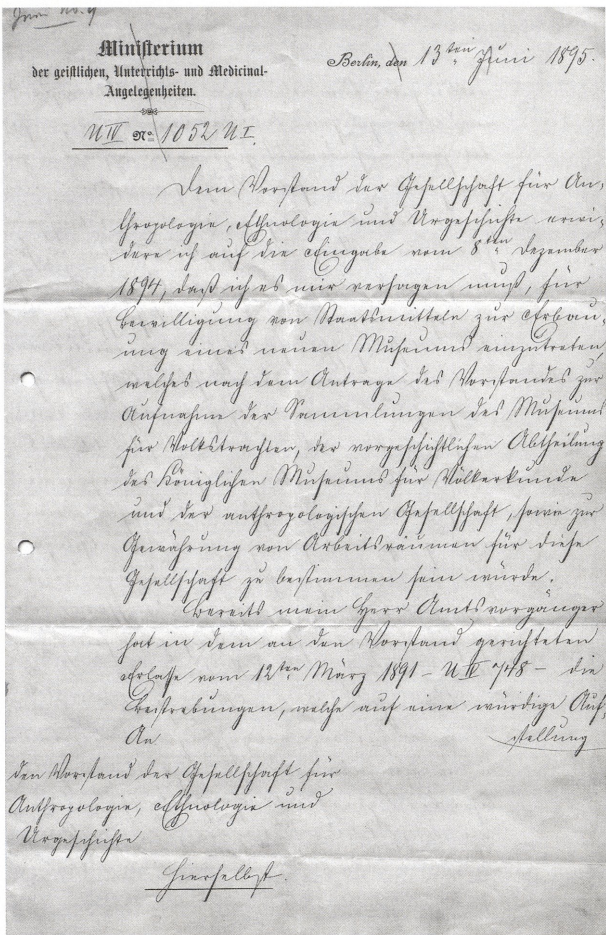 Ministerium
der geistlichen, Unterrichts- und Medicinal-
Angelegenheiten.
Berlin, den 13ten Juni 1895.
U IV No 1052 U I.
Dem Vorstand der Gesellschaft für An-
thropologie, Ethnologie und Urgeschichte erwi-
dere ich auf die Eingabe vom 8ten Dezember
1894, daß ich es mir versagen muß, für
Bewilligung von Staatsmitteln zur Erbau-
ung eines neuen Museums einzutreten,
welches nach dem Antrage des Vorstandes zur
Aufnahme der Sammlungen des Museums
für Volkstrachten, der vorgeschichtlichen Abtheilung
des Königlichen Museums für Völkerkunde
und der anthropologischen Gesellschaft, sowie zur
Gewährung von Arbeitsräumen für diese
Gesellschaft zu bestimmen sein würde.
Bereits mein Herr Amtsvorgänger
hat in dem an den Vorstand gerichteten
Erlasse vom 12ten März 1891 – U IV 748 – die
Bestrebungen, welche auf eine würdige Auf-
stellung
An
den Vorstand der Gesellschaft für
Anthropologie, Ethnologie und
Urgeschichte
hierselbst.